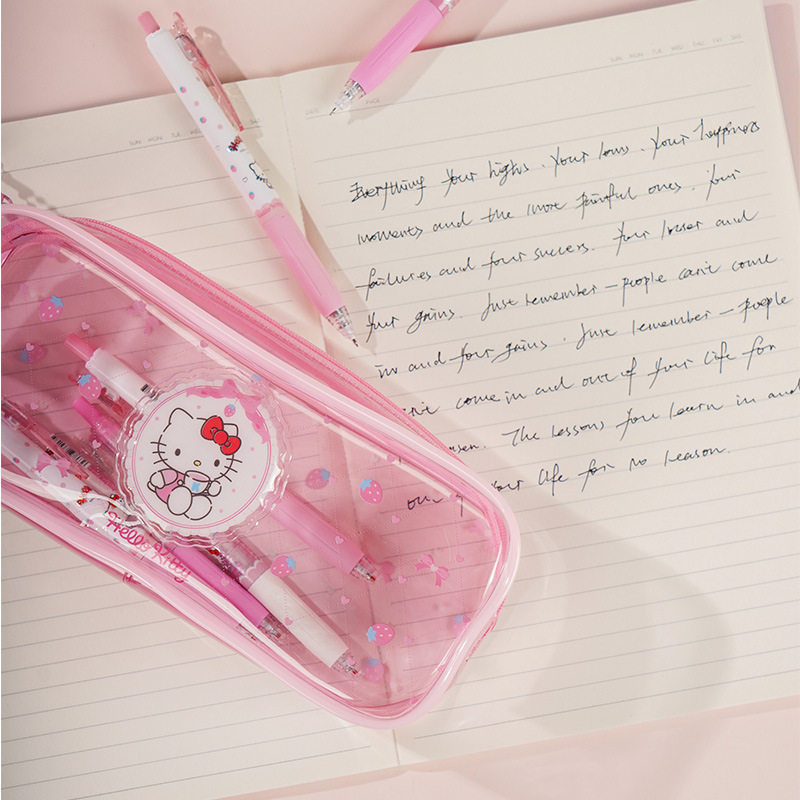 SUN MON TUE WED THU FRI SAT
SUN MON TUE
DATE PAGE
Everything your highs. Your lows. Your happiness
moments and the most painful ones. Your
failures and your success. Your losses and
Your gains. Just remember — people can't come
in and your gains. Just remember — people
can't come in and out of your life for
The lessons you learn in and
your life for no reason.
Hello Kitty